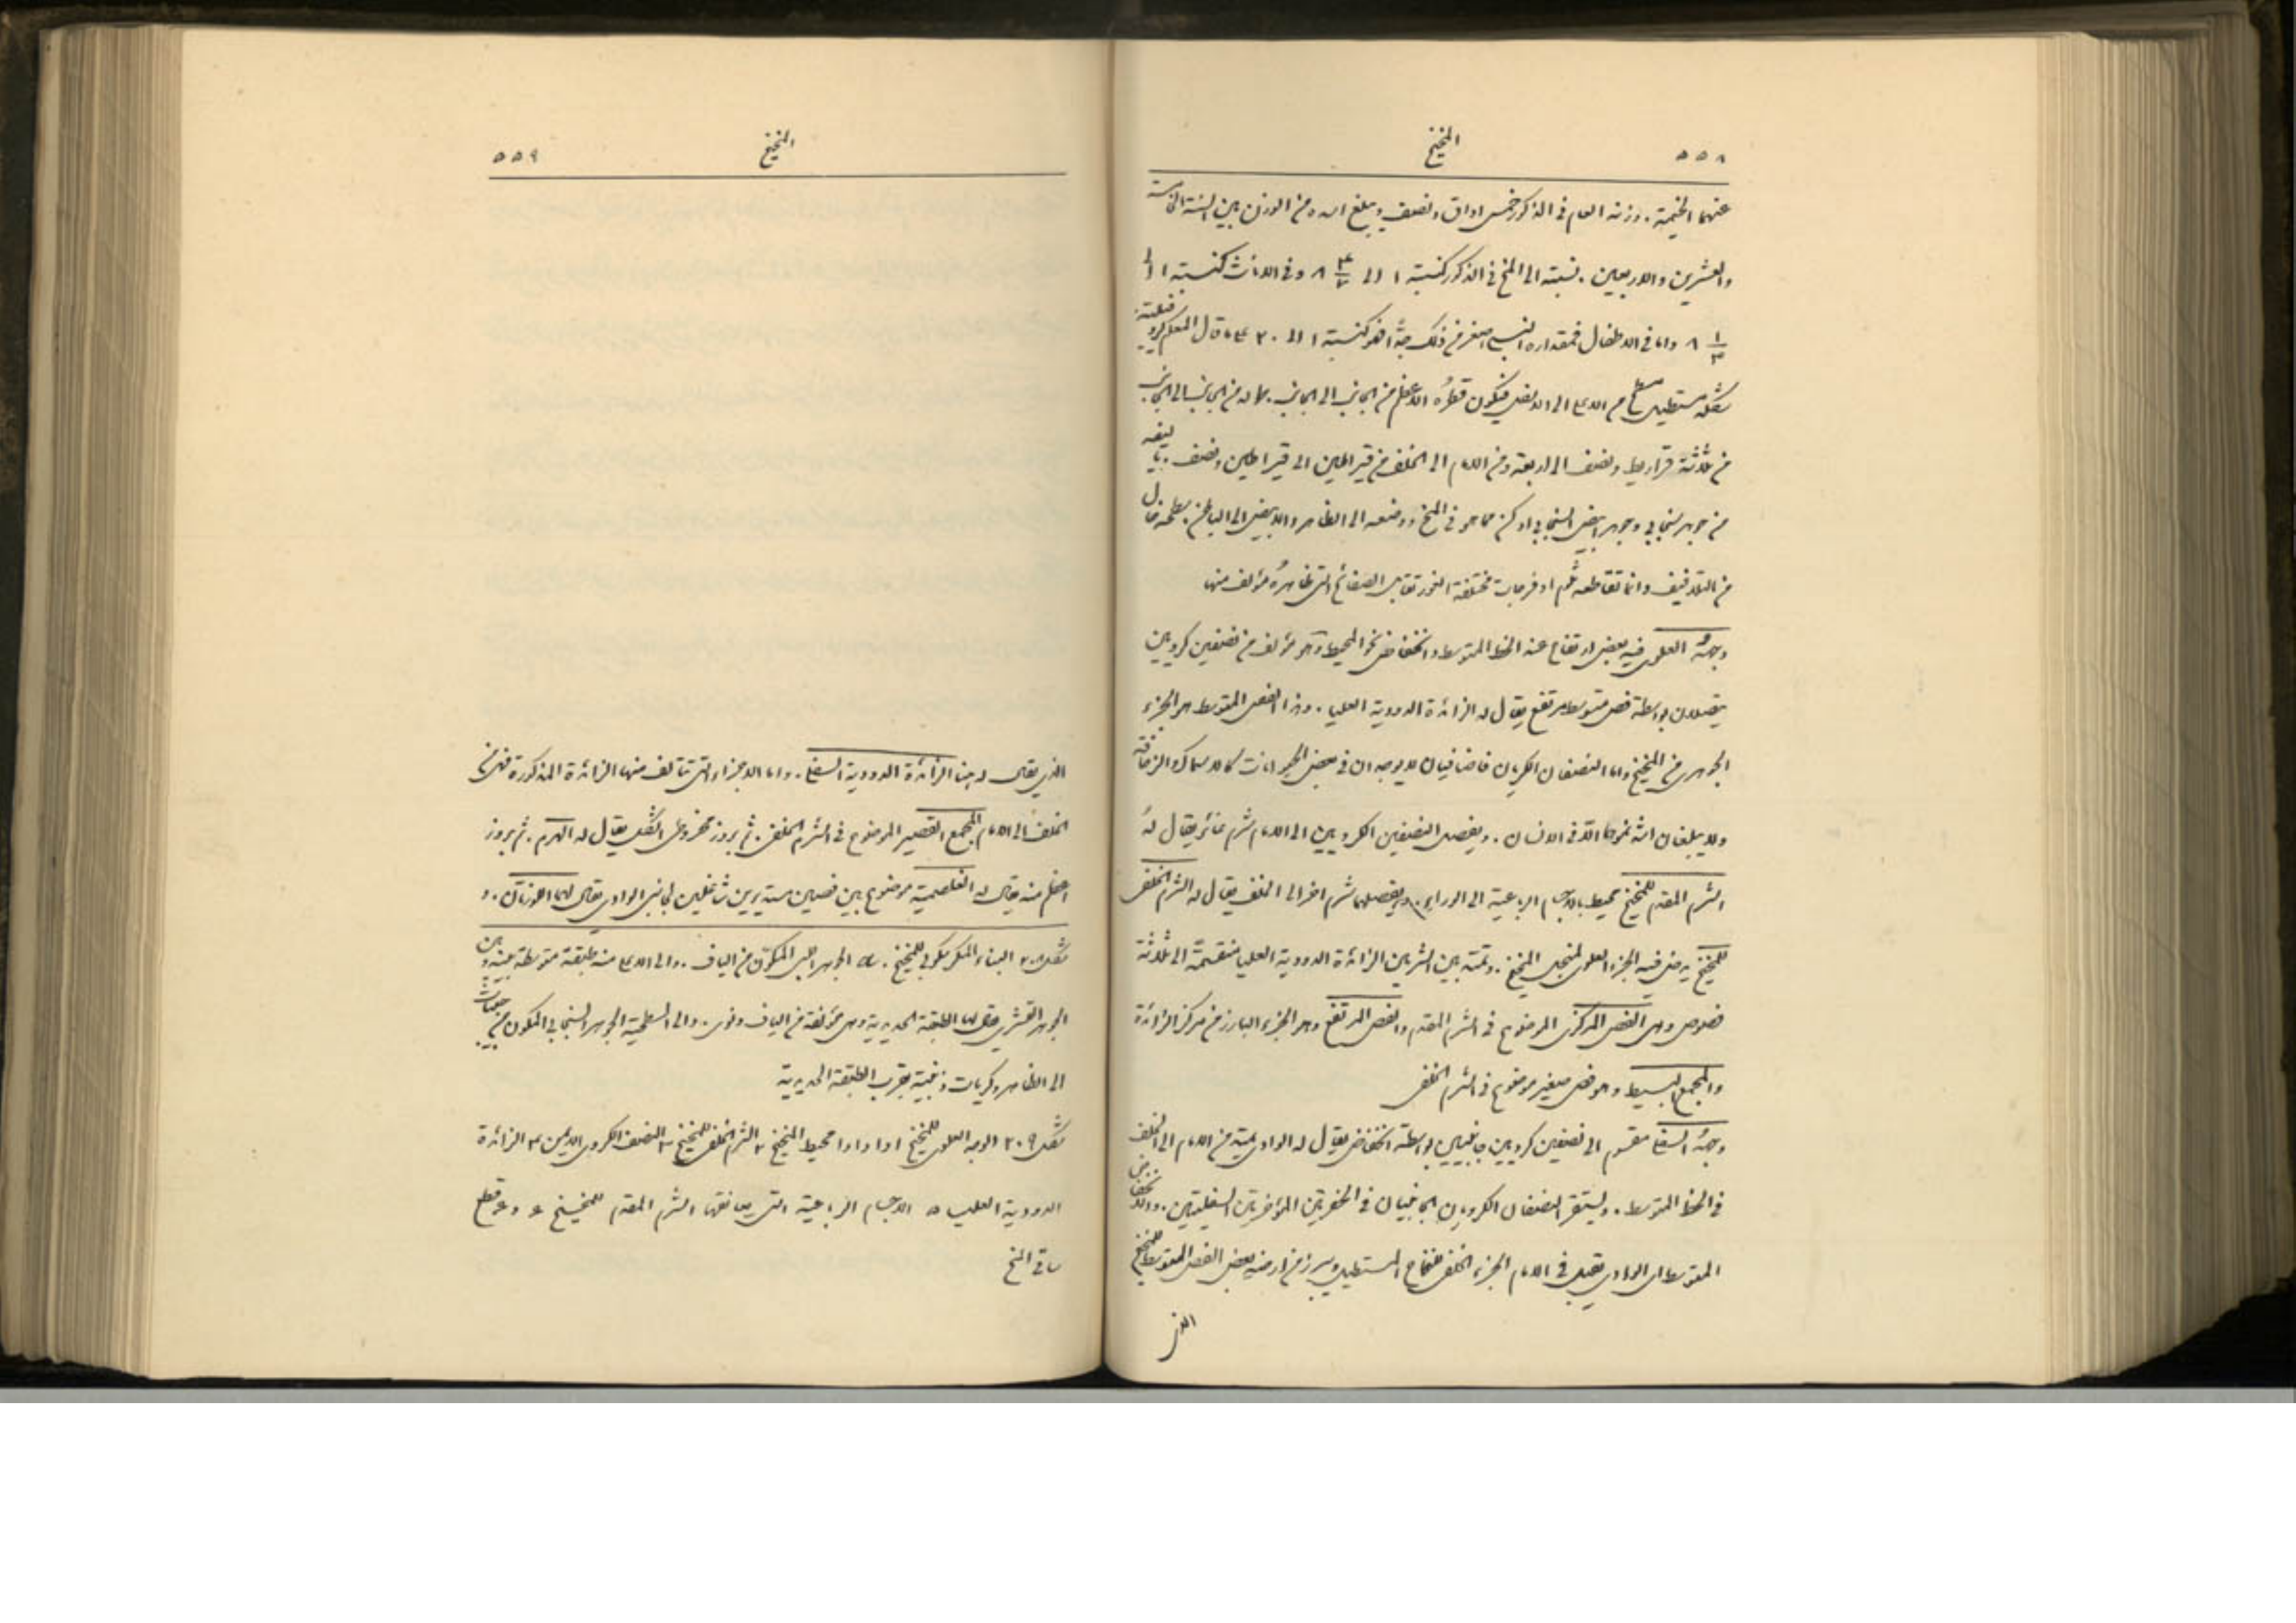 ٥٥٨ المخيخ
عنهما الخيمة . وزنه العام في الذكور خمس اواق ونصف ويبلغ اشده من الوزن بين السنة الخامسة
والعشرين والاربعين . نسبته الى المخ في الذكور كنسبة ١ الى ٨ ٤/٧ وفي الاناث كنسبة ١ الى
٨ ١/٤ واما في الاطفال فمقداره النسبي اصغر من ذلك جدًّا فهو كنسبة ١ الى ٢٠
شكله مستطيل من الاعلى الى الاسفل فيكون قطرهُ الاعظم من الجانب الى الجانب . من الجانب الى الجانب
من ثلاثة قراريط ونصف الى اربعة ومن الامام الى الخلف من قيراطين الى قيراطين ونصف . بناؤه
من جوهر سنجابي وجوهر ابيض السنجابي ادكن مما هو في المخ ووضعه الى الظاهر والابيض الى الباطن . سطحه خالٍ
من التلافيف وانما تقاطعه ثلم او فرجات مختلفة الغور تقابل الصفائح التي ظاهرهُ مؤلف منها
وجههُ العلوي فيه بعض ارتفاع عند الخط المتوسط وانخفاض نحو المحيط وهو مؤلف من نصفين كرويين
يتصلان بواسطة فص متوسط مرتفع يقال له الزائدة الدودية العليا . وهذا الفص المتوسط هو الجزء
الجوهري من المخيخ واما النصفان الكرويان فاضافيان لا يوجدان في بعض الحيوانات كالاسماك والزحافة
ولا يبلغان اشد نموهما الا في الانسان . ويفصل النصفين الكرويين الى الامام شرم غائر يقال لهُ
الشرم المقدم للمخيخ محيط بالاجسام الرباعية الى الوراء . ويفصلهما شرم اخر الى الخلف يقال له الشرم الخلفي
للمخيخ يدخل فيه الجزء العلوي لمنجل المخيخ . وتمتد بين الشرمين الزائدة الدودية العليا منقسمة الى ثلاثة
فصوص وهي الفص المركزي الموضوع في الشرم المقدم والفص المرتفع وهو الجزء البارز من مركز الزائدة
والمجمع البسيط وهو فص صغير موضوع في الشرم الخلفي
وجههُ السفلي مقسوم الى نصفين كرويين جانبيين بواسطة انخفاض يقال له الوادي يمتد من الامام الى الخلف
في الخط المتوسط . ويستقر النصفان الكرويان الجانبيان في الحفرتين المؤخرتين السفليتين . والانخفاض
المتوسط اي الوادي يقبل في الامام الجزء الخلفي للنخاع المستطيل ويبرز من ارضه بعض الفص المتوسط للمخيخ
الذي
المخيخ ٥٥٩
الذي يقال له هنا الزائدة الدودية السفلى . واما الاجزاء التي تتألف منها الزائدة المذكورة فهي من
الخلف الى الامام المجمع القصير الموضوع في الشرم الخلفي . ثم بروز مخروطي الشكل يقال له الهرم . ثم بروز
اعظم منه يقال له الغلصمية موضوع بين فصين مستديرين شاغلين لجانبي الوادي يقال لهما اللوزتان . و
شكل ٢٠٨ البناء المكرسكوبي للمخيخ . الجوهر اللبي المكوّن من الياف . والى الاعلى منه طبقة متوسطة بينه وبين
الجوهر القشري يقال لها الطبقة الحديدية وهي مؤلفة من الياف ونوى . والى السطحية الجوهر السنجابي المكون من
الى الظاهر وكريات ذنبية بقرب الطبقة الحديدية
شكل ٢٠٩ الوجه العلوي للمخيخ ١ و١ و١ و١ محيط المخيخ ٢ الشرم الخلفي للمخيخ ٣ النصف الكروي الايمن ٤ الزائدة
الدودية العليا ٥ الاجسام الرباعية التي يعانقها الشرم المقدم للمخيخ ٦ و٦ قطع
ساقي المخ